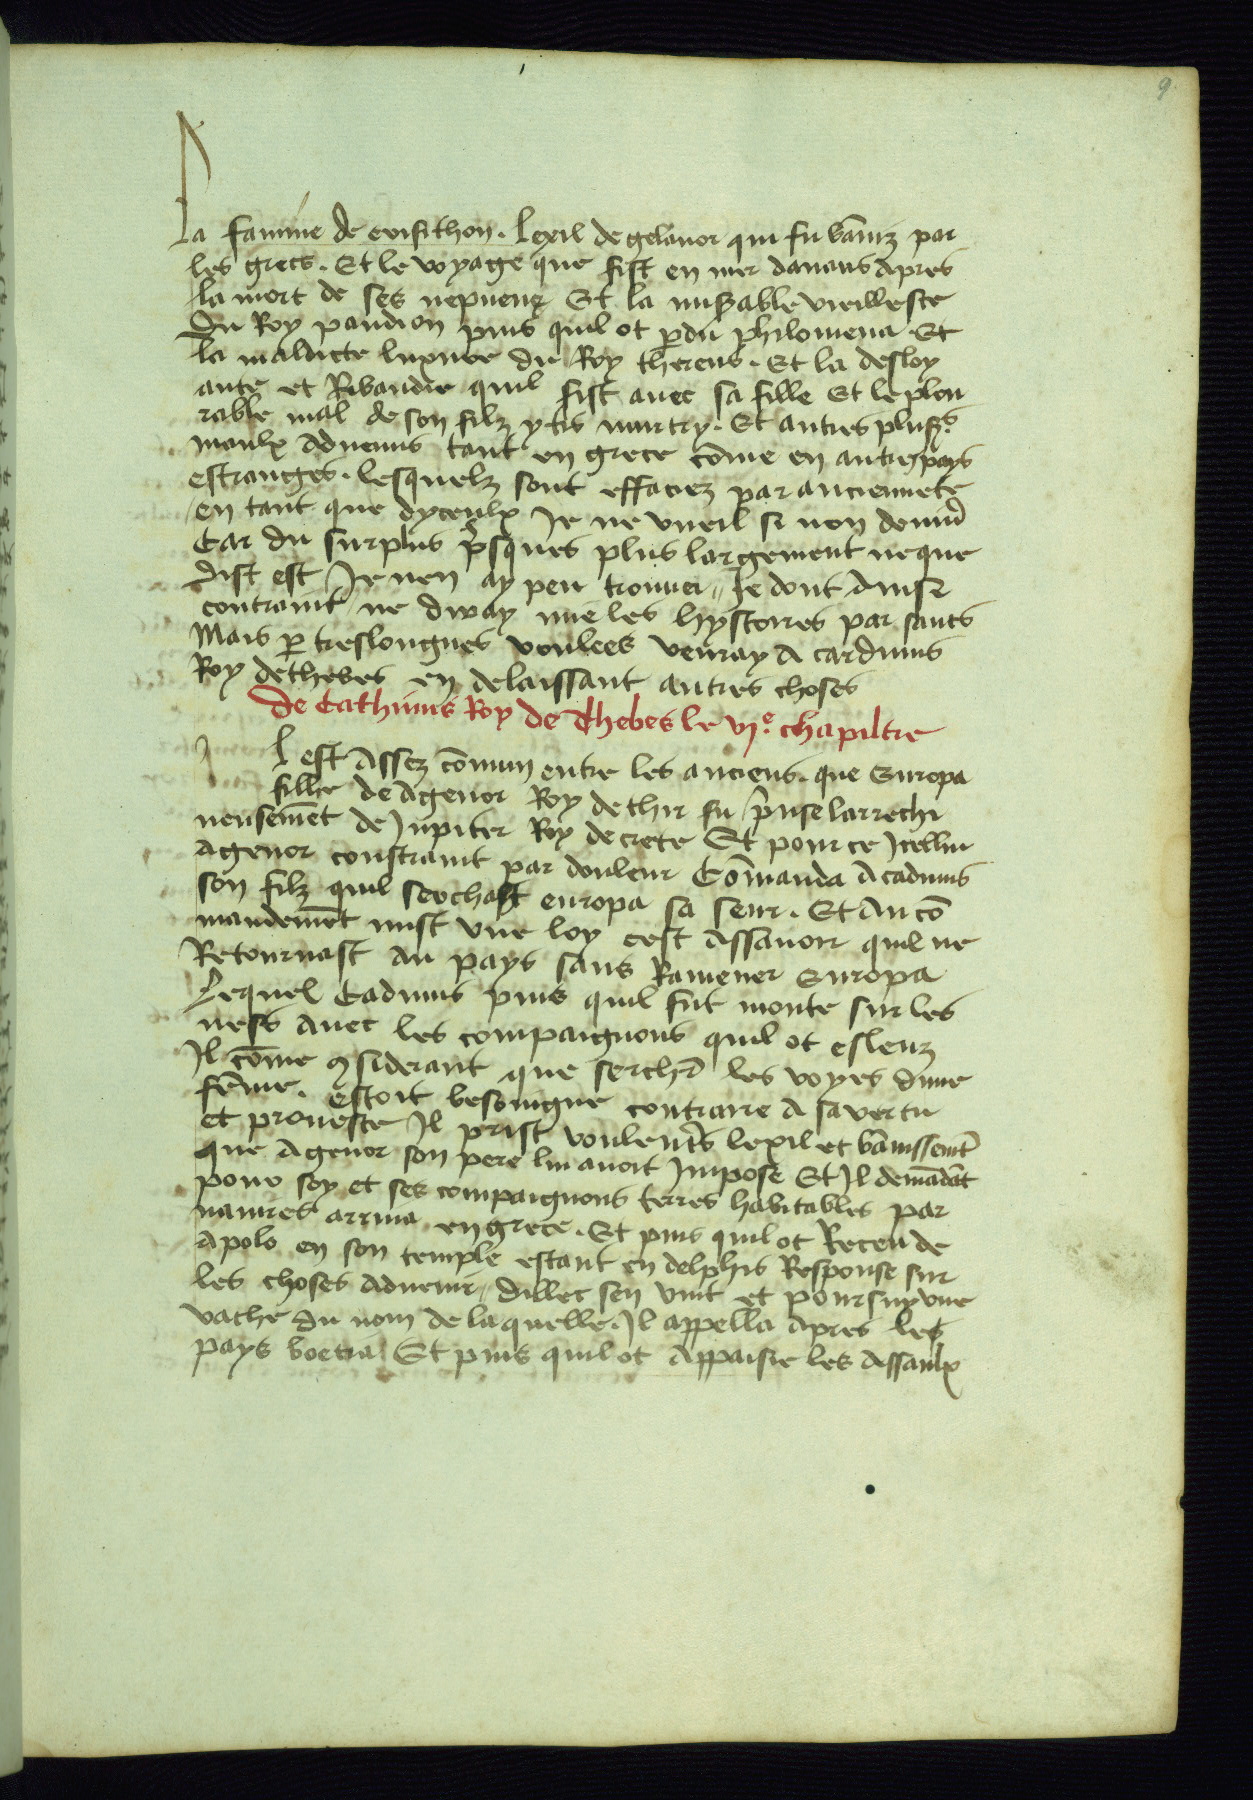 9
La famine de erisithon. Lexil de gelanor qui fu bāniz par
les grecs. Et le voyage que fist en mer danaus apres
la mort de ses nepueuz Et la miẜable vieillesce
Du Roy pandion puis quil ot ꝑdu philomena. Et
la maluete luxure du Roy thereus. Et la desloy
aute et Ribaudie quil fist auec sa fille Et le plou
rable mal de son filz ytis murtry. Et autres plusrs
maulx aduenus tant en grece cōme en autrez pays
estranges. lesquelz sont effaciez par anciennete
en tant que dyceulx Je ne vueil si non
Car du surplus p̄sques plus largement ne que
dist est Je nen ay peu trouuer,, Je dont Ainse
contraint ne diray mie les hystoires par saults
Mais ꝑ treslongues voulees venray A cardmus
Roy dethebes en delaissant autres choses
De Cathmus Roy de Thebes le vjͤ. chapiltre
Il est Assez cōmun entre les anciens. que Europa
fille de Agenor Roy de thir fu prinse larrechi
neusemēt de Jupiter Roy de crete Et pour ce Jcellui
Agenor constraint par douleur Cōmanda A cadmus
son filz quil serchast europa sa seur. Et Au cō
mandemēt mist vne loy cest Assauoir quil ne
Retournast Au pays sans Ramener Europa
Lequel Cadmus puis quil fut monte sur les
nefs Auec les compaignons quil ot esleuz
Il cōme ꝯsiderant que serchr̄ les voyes dune
fēme. estoit besoingne contraire A sa vertu
et prouesce Il prist voulent̄s lexil et bānissemt̄
que Agenor son pere lui auoit Jmpose Et Il demādāt
pour soy et ses compaignons terres habitables par
nauires arriua en grece. Et puis quil ot Receu de
Apolo en son temple estant en delphis Response sur
les choses Aduenir, dillec sen vint et poursuy vne
vache du nom de laquelle. Il appella Apres les
pays boetia Et puis quil ot Appaisie les Assaulx